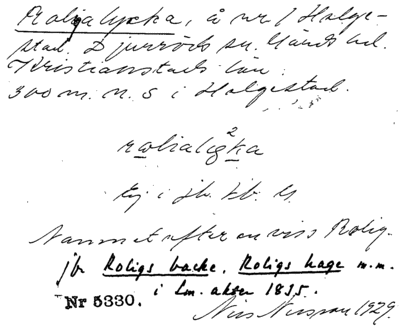 Roligalycka, å nr 1 Holge-
stad. Djurröds sn. Gärds hd.
Kristianstads län.
300 m. n. S i Holgestad.
Ej i jb.
Namnet efter en viss Rolig.
jfr Roligs backe, Roligs hage m.m.
i Lm. akter 1835.
Nr 5330.
Nils Nilsson 1929.